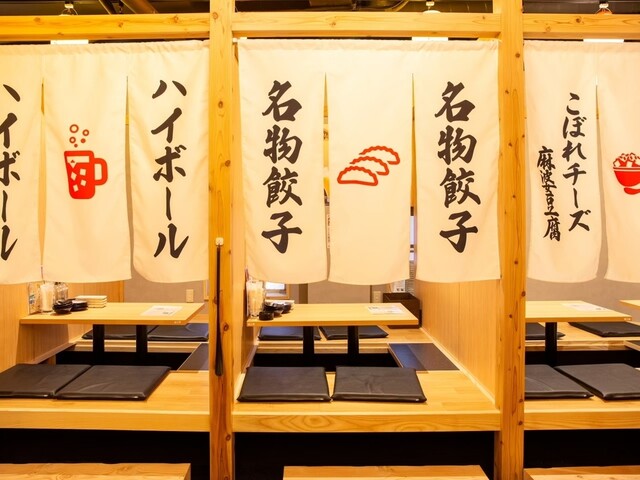 ハイボール
ハイボール
名物餃子
名物餃子
こぼれチーズ
麻婆豆腐